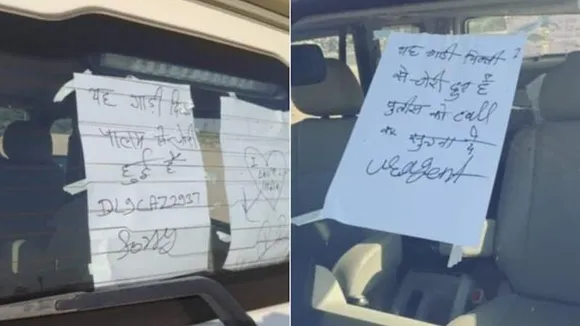 यह गाडी दिल्ली
पालम से चोरी
हुई है
DL9CAZ2937
Sorry
I
Love
India
यह गाडी दिल्ली
से चोरी हुई है
पुलीस को call
कर सुचना दे
urgent